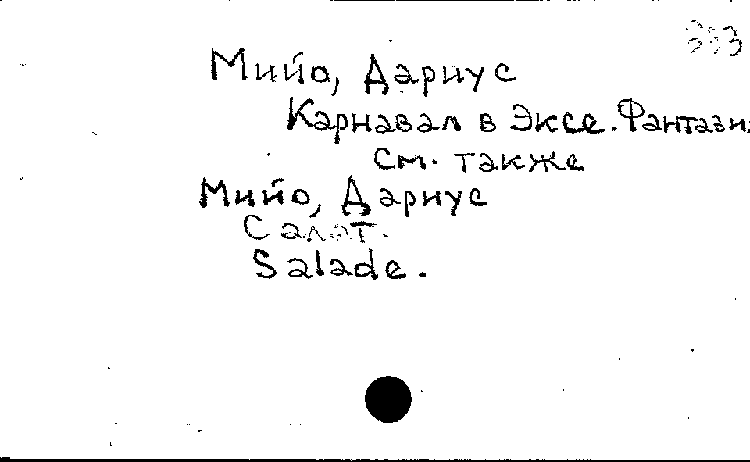 Мийо, Дариус
Карнавал в Эксе. Фантазия
см. также
Мийо, Дариус
Салат.
Salade.